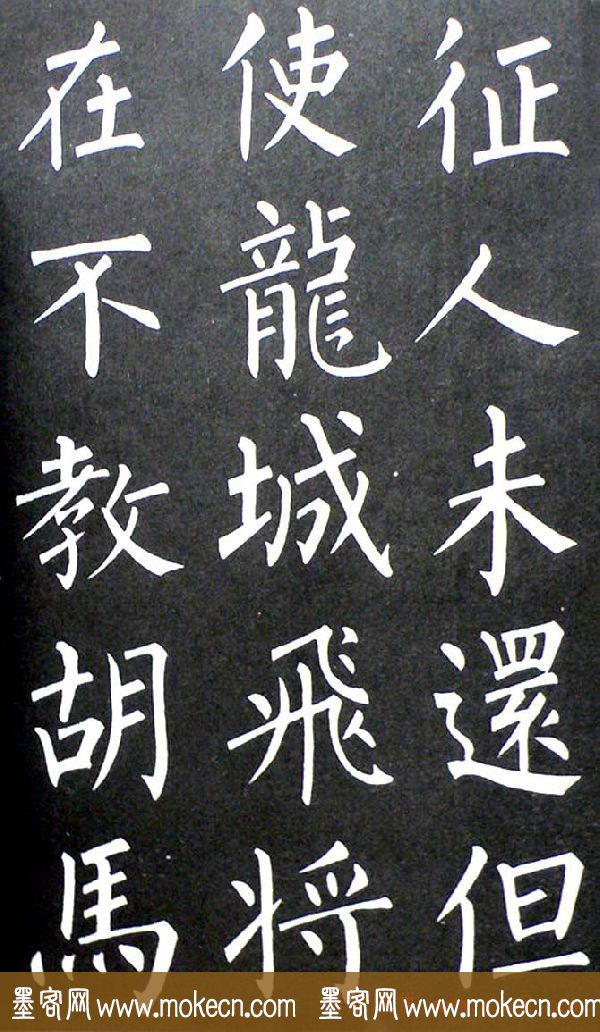 征人未還但
使龍城飛将
在不教胡馬
墨客网 www.mokecn.com 墨客网 www.mokecn.com